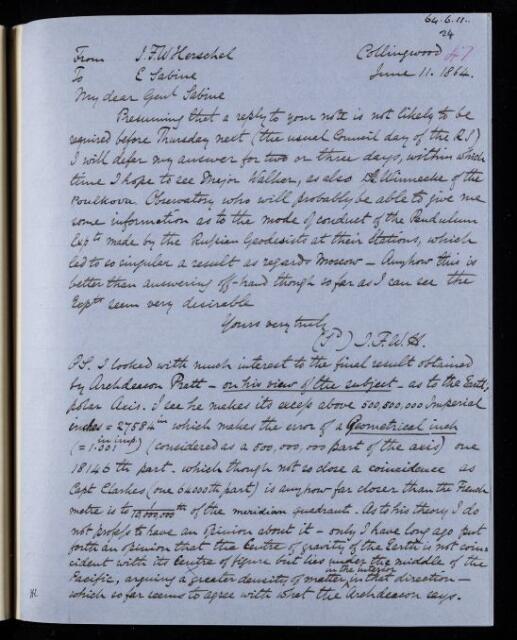 64.6.11.
24
From J.F.W Herschel Collingwood 47
To E Sabine June 11. 1864.
My dear Genl Sabine
Presuming that a reply to your note is not likely to be
required before Thursday next (the usual Council day of the R.S)
I will defer my answer for two or three days, within which
time I hope to see Major Walker, as also Dr Winnecke of the
Poulkova Observatory who will probably be able to give me
some information as to the mode of conduct of the Pendulum
Expts made by the Russian Geodesists at their Stations, which
led to so singular a result as regards Moscow – Anyhow this is
better than answering off-hand though so far as I can see the
Expts seem very desirable
Yours very truly
(Sd) J.F.W.H.
PS. I looked with much interest to the final result obtained
by Archdeacon Pratt – on his view of the subject – as to the Earth's
polar Axis. I see he makes its excess above 500,500,000 Imperial
inches = 27584 in which makes the error of a Geometrical inch
(= 1.001 in imp.) (considered as a 500,000,000 part of the axis) one
18146 th part. which though not so close a coincidence as
Capt Clarkes (one 64000th part) is anyhow far closer than the French
metre is to 1/10,000,000 th of the meridian quadrant. As to his theory I do
not profess to have an opinion about it – only I have long ago put
forth an opinion that the Centre of gravity of the Earth is not coin-
cident with its Centre of figure but lies under the middle of the
Pacific, arguing a greater density of matter in the interior in that direction –
which so far seems to agree with what the Archdeacon says.